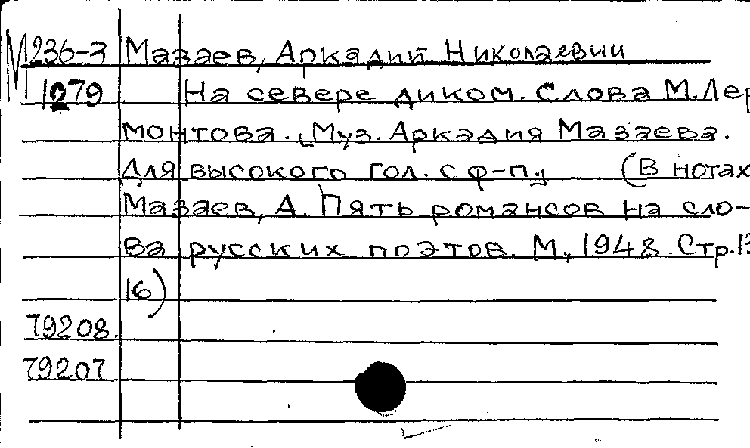 М236-3 Мазаев, Аркадий Николаевич
1079 На севере диком. Слова М. Лер
монтова. [Муз. Аркадия Мазаева.
Для высокого гол. с ф-п.] (В нотах
Мазаев, А. Пять романсов на сло-
ва русских поэтов. М., 1948. Стр. 13
16)
79208
79207